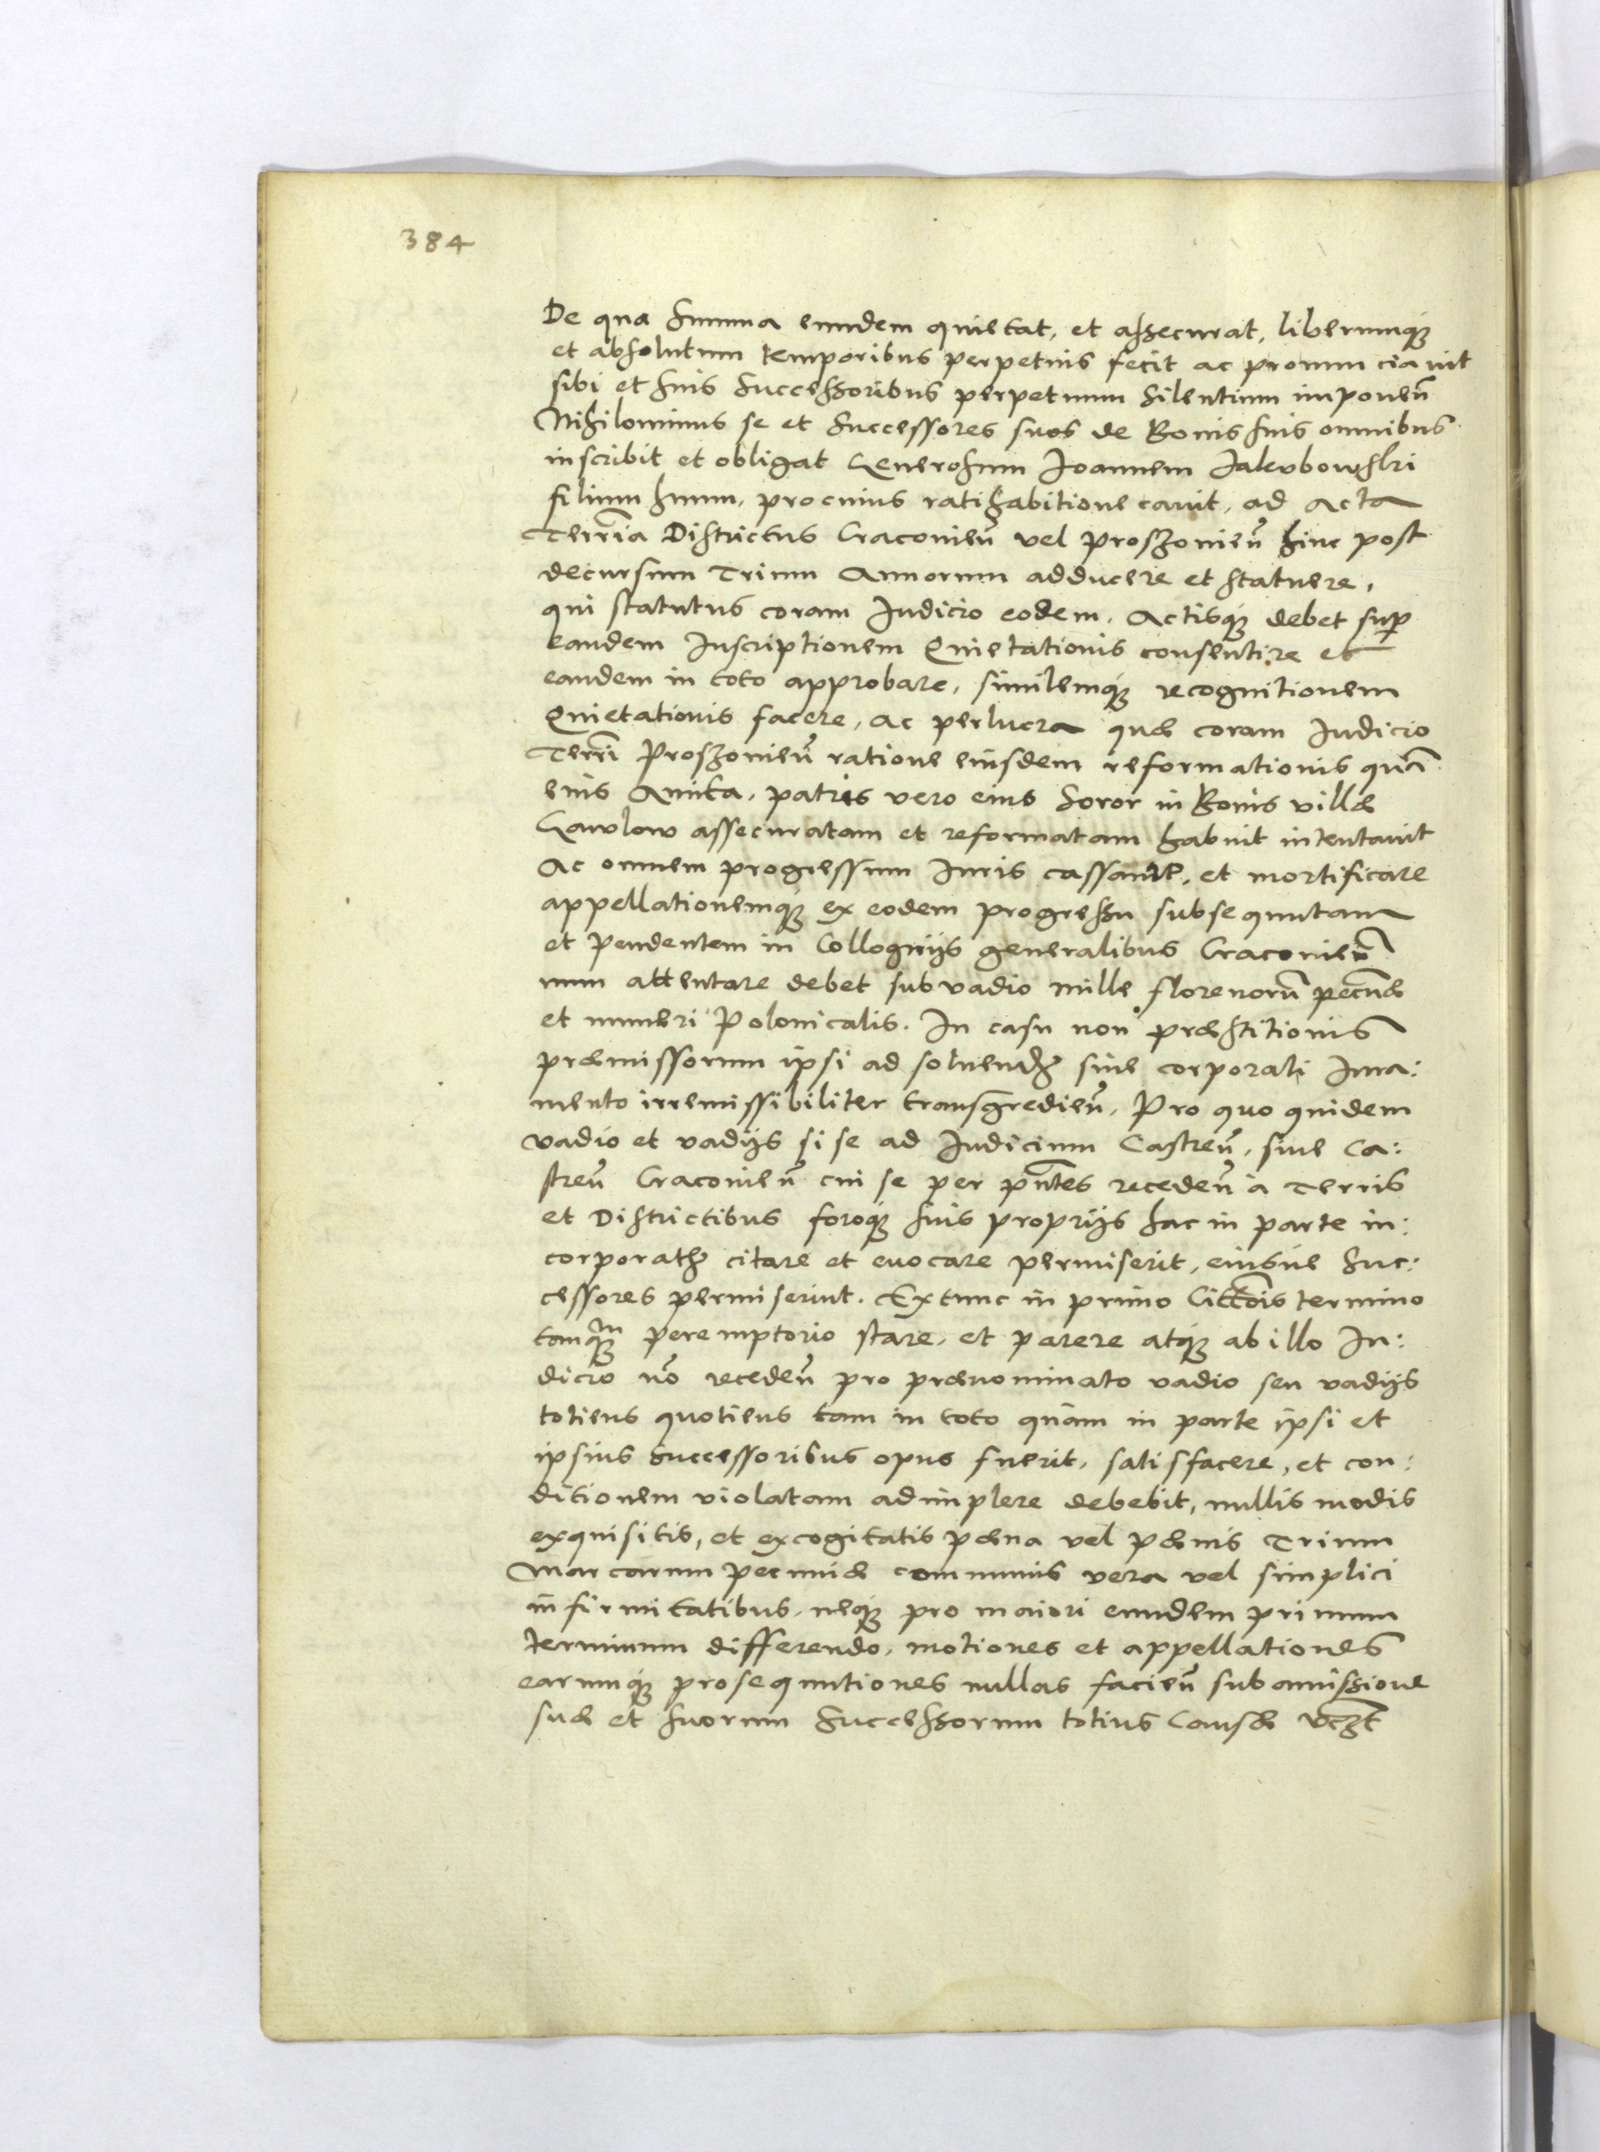 384
De qua Summa eundem quietat, et assecurat, liberumq;
et absolutum temporibus perpetuis fecit ac pronunciavit
sibi et suis Successoribus perpetuum silentium imponen̄
Nihilominus se et Successores suos de Bonis suis omnibus
inscribit et obligat Generosum Joannem Jakubowski
filium suum, pro cuius ratihabitione cavit, ad Acta
Terr̄ia Districtus Cracovien̄ vel Proszovien̄ hinc post
decursum Trium Annorum adducere et statuere,
qui statutus coram Judicio eodem, Actisq; debet sup̱
eandem Inscriptionem Quietationis consentire et
eandem in toto approbare, similemq; recognitionem
Quietationis facere, ac per lucra quæ coram Judicio
Terr̄i Proszovien̄ ratione eiusdem reformationis quā
eius Amita, patris vero eius Soror in Bonis villæ
Gawlow assecuratam et reformatam habuit intentavit
Ac omnem progressum Juris cassare, et mortificare
appellationemq; ex eodem progressu subsequutam
et pendentem in Colloquijs generalibus Cracovien̄
num attentare debet sub vadio mille florenorū pecūæ
et numeri Polonicalis. In casu non præstitionis
præmissorum ipsi ad solvend: sine corporali Jura:
mento irremissibiliter transgredien̄. Pro quo quidem
vadio et vadijs si se ad Judicium Castren̄, sive Ca:
stren̄ Cracovien̄ cui se per pn̄tes receden̄ à Terris
et Districtibus foroq; suis proprijs hac in parte in:
corporat: citare et evocare permiserit, eiusve Suc:
cessores permiserint. Extunc in primo Citt̄ois termino
tanq; in peremptorio stare, et parere atq; ab illo Ju:
dicio nō receden̄ pro prænominato vadio seu vadijs
totiens quotiens tam in toto quàm in parte ipsi et
ipsius Successoribus opus fuerit, satisfacere, et con:
ditionem violatam adimplere debebit, nullis modis
exquisitis, et excogitatis pæna vel pænis Trium
Marcarum pecuniæ communis vera vel simplici
infirmitatibus, neq; pro maiori eundem primum
terminum differendo, motiones et appellationes
earumq; prosequutiones nullas facien̄ sub amissione
suæ et suorum Successorum totius Causæ